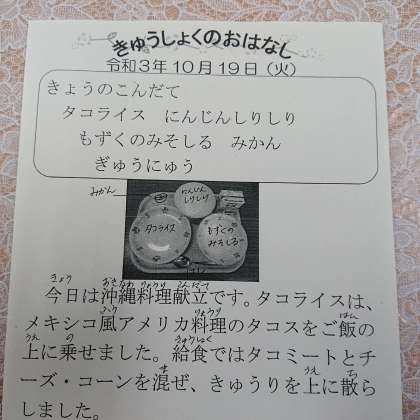 きゅうしょくのおはなし
令和3年10月19日（火）
きょうのこんだて
タコライス　にんじんしりしり
もずくのみそしる　みかん
ぎゅうにゅう
みかん
にんじん
しりしり
タコライス
もずくの
みそしる
はし
今日は沖縄料理献立です。タコライスは、
メキシコ風アメリカ料理のタコスをご飯の
上に乗せました。給食ではタコミートとチ
ーズ・コーンを混ぜ、きゅうりを上に散ら
しました。